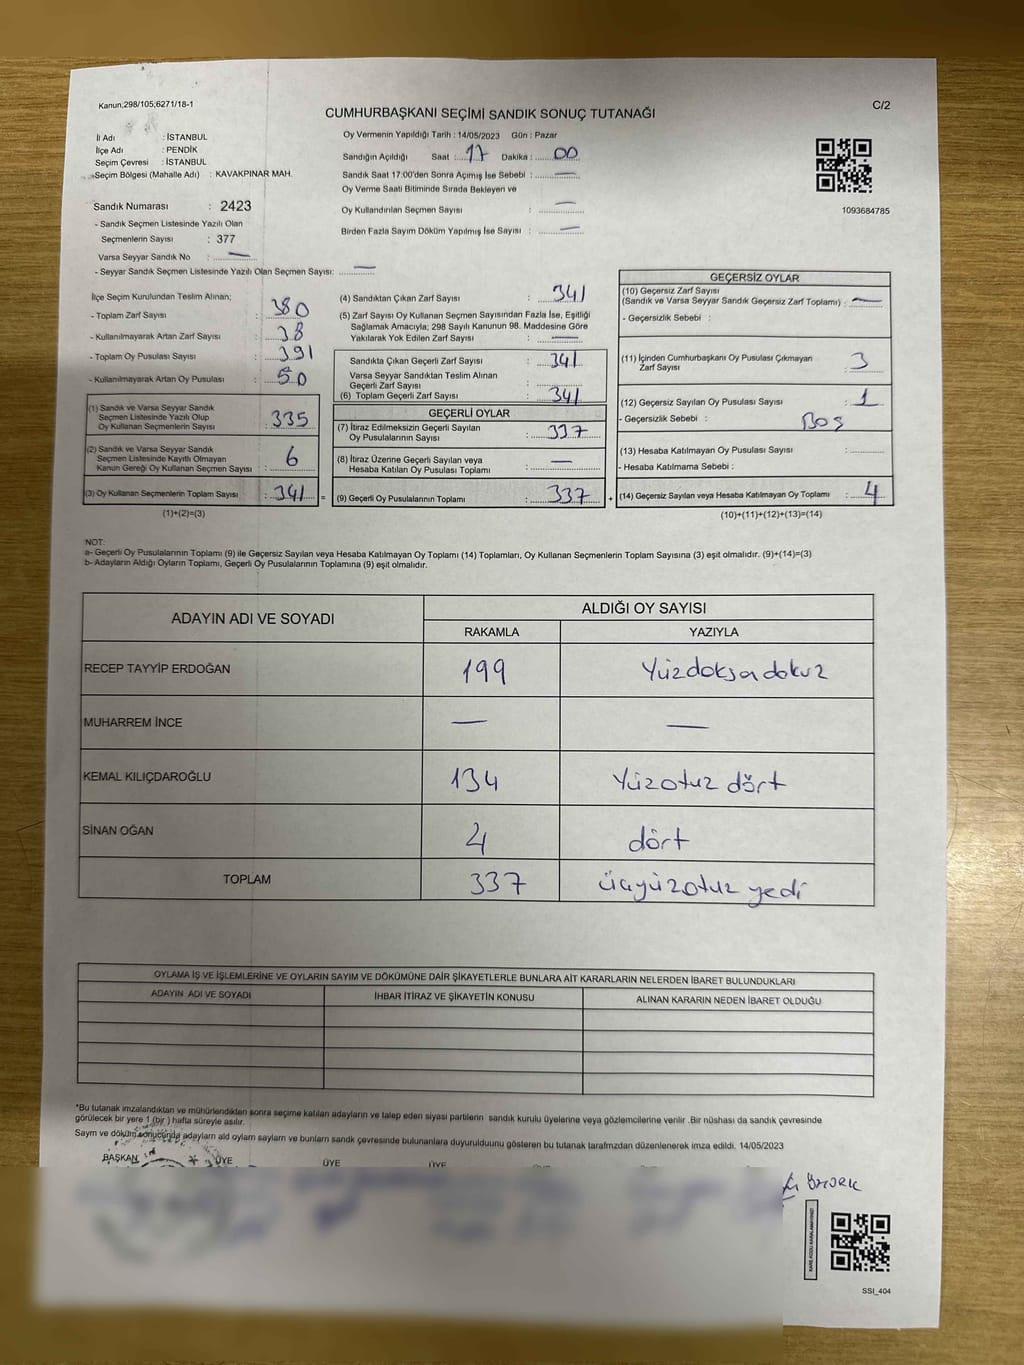 Kanun;298/105;6271/18-1
C/2
CUMHURBAŞKANI SEÇİMİ SANDIK SONUÇ TUTANAĞI
İl Adı : İSTANBUL
İlçe Adı : PENDİK
Seçim Çevresi : İSTANBUL
Seçim Bölgesi (Mahalle Adı) : KAVAKPINAR MAH.
Sandık Numarası : 2423
- Sandık Seçmen Listesinde Yazılı Olan
Seçmenlerin Sayısı : 377
Varsa Seyyar Sandık No : —
- Seyyar Sandık Seçmen Listesinde Yazılı Olan Seçmen Sayısı: —
Oy Vermenin Yapıldığı Tarih : 14/05/2023 Gün : Pazar
Sandığın Açıldığı Saat : 17 Dakika : 00
Sandık Saat 17:00'den Sonra Açımış İse Sebebi : —
Oy Verme Saati Bitiminde Sırada Bekleyen ve
Oy Kullandırılan Seçmen Sayısı : —
Birden Fazla Sayım Döküm Yapılmış İse Sayısı : —
1093684785
İlçe Seçim Kurulundan Teslim Alınan;
- Toplam Zarf Sayısı : 380
- Kullanılmayarak Artan Zarf Sayısı : 38
- Toplam Oy Pusulası Sayısı : 391
- Kullanılmayarak Artan Oy Pusulası : 50
(1) Sandık ve Varsa Seyyar Sandık
Seçmen Listesinde Yazılı Olup
Oy Kullanan Seçmenlerin Sayısı : 335
(2) Sandık ve Varsa Seyyar Sandık
Seçmen Listesinde Kayıtlı Olmayan
Kanun Gereği Oy Kullanan Seçmen Sayısı : 6
(3) Oy Kullanan Seçmenlerin Toplam Sayısı : 341 =
(1)+(2)=(3)
(4) Sandıktan Çıkan Zarf Sayısı : 341
(5) Zarf Sayısı Oy Kullanan Seçmen Sayısından Fazla İse, Eşitliği
Sağlamak Amacıyla; 298 Sayılı Kanunun 98. Maddesine Göre
Yakılarak Yok Edilen Zarf Sayısı : —
Sandıkta Çıkan Geçerli Zarf Sayısı : 341
Varsa Seyyar Sandıktan Teslim Alınan
Geçerli Zarf Sayısı :
(6) Toplam Geçerli Zarf Sayısı : 341
GEÇERLİ OYLAR
(7) İtiraz Edilmeksizin Geçerli Sayılan
Oy Pusulalarının Sayısı : 337
(8) İtiraz Üzerine Geçerli Sayılan veya
Hesaba Katılan Oy Pusulası Toplamı : —
(9) Geçerli Oy Pusulalarının Toplamı : 337 +
GEÇERSİZ OYLAR
(10) Geçersiz Zarf Sayısı
(Sandık ve Varsa Seyyar Sandık Geçersiz Zarf Toplamı) : —
- Geçersizlik Sebebi :
(11) İçinden Cumhurbaşkanı Oy Pusulası Çıkmayan
Zarf Sayısı : 3
(12) Geçersiz Sayılan Oy Pusulası Sayısı : 1
- Geçersizlik Sebebi : Boş
(13) Hesaba Katılmayan Oy Pusulası Sayısı :
- Hesaba Katılmama Sebebi :
(14) Geçersiz Sayılan veya Hesaba Katılmayan Oy Toplamı : 4
(10)+(11)+(12)+(13)=(14)
NOT:
a- Geçerli Oy Pusulalarının Toplamı (9) ile Geçersiz Sayılan veya Hesaba Katılmayan Oy Toplamı (14) Toplamları, Oy Kullanan Seçmenlerin Toplam Sayısına (3) eşit olmalıdır. (9)+(14)=(3)
b- Adayların Aldığı Oyların Toplamı, Geçerli Oy Pusulalarının Toplamına (9) eşit olmalıdır.
ADAYIN ADI VE SOYADI ALDIĞI OY SAYISI
RAKAMLA YAZIYLA
RECEP TAYYİP ERDOĞAN 199 Yüzdoksadokuz
MUHARREM İNCE — —
KEMAL KILIÇDAROĞLU 134 Yüzotuz dört
SİNAN OĞAN 4 dört
TOPLAM 337 üçyüzotuz yedi
OYLAMA İŞ VE İŞLEMLERİNE VE OYLARIN SAYIM VE DÖKÜMÜNE DAİR ŞİKAYETLERLE BUNLARA AİT KARARLARIN NELERDEN İBARET BULUNDUKLARI
ADAYIN ADI VE SOYADI İHBAR İTİRAZ VE ŞİKAYETİN KONUSU ALINAN KARARIN NEDEN İBARET OLDUĞU
*Bu tutanak imzalandıktan ve mühürlendikten sonra seçime katılan adayların ve talep eden siyasi partilerin sandık kurulu üyelerine veya gözlemcilerine verilir .Bir nüshası da sandık çevresinde
görülecek bir yere 1 (bir ) hafta süreyle asılır.
Sayım ve döküm sonucunda adayların ald oyların sayların ve bunların sandık çevresinde bulunanlara duyurulduunu gösteren bu tutanak tarafmzdan düzenlenerek imza edildi. 14/05/2023
BAŞKAN ÜYE ÜYE ÜYE
SSI_404